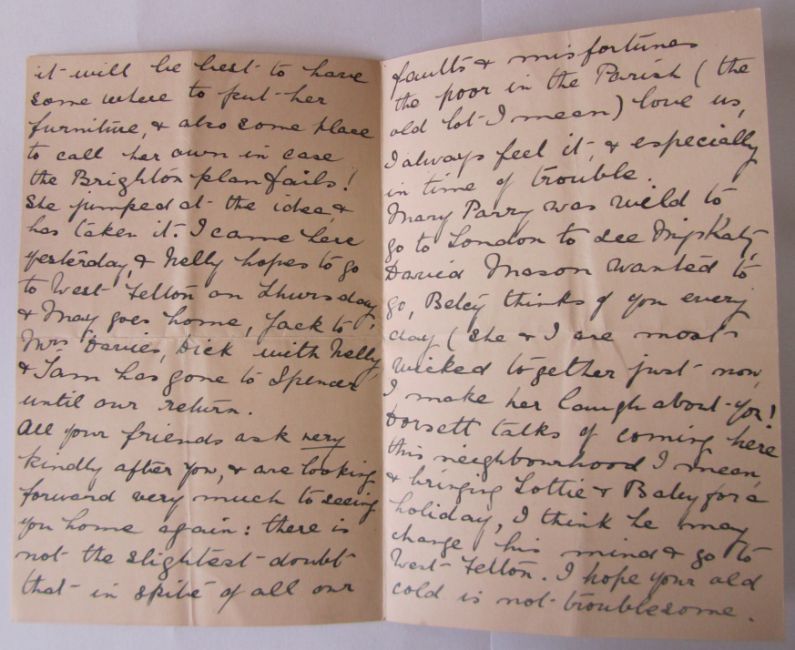 it will be best to have
some where to put her
furniture, & also some place
to call her own in case
the Brighton plan fails!
She jumped at the idea, &
has taken it. I came here
yesterday, & Nelly hopes to go
to West Felton on Thursday,
& May goes home, Jack to
Mrs Davies, Dick with Nelly,
& Sam has gone to Spender
until our return.
All your friends ask very
kindly after you, & are looking
forward very much to seeing
you home again: there is
not the slightest doubt
that in spite of all our
faults & misfortunes
the poor in the Parish (the
old lot I mean) love us,
I always feel it, & especially
in time of trouble.
Mary Parry was wild to
go to London to see Miss Katy,
David Mason wanted to
go, Betsy thinks of you every
day (she & I are most
wicked together just now,
I make her laugh about you!
Dorsett talks of coming here
this neighbourhood I mean,
& bringing Lottie & Baby for a
holiday, I think he may
change his mind & go to
West Felton. I hope your old
cold is not troublesome.